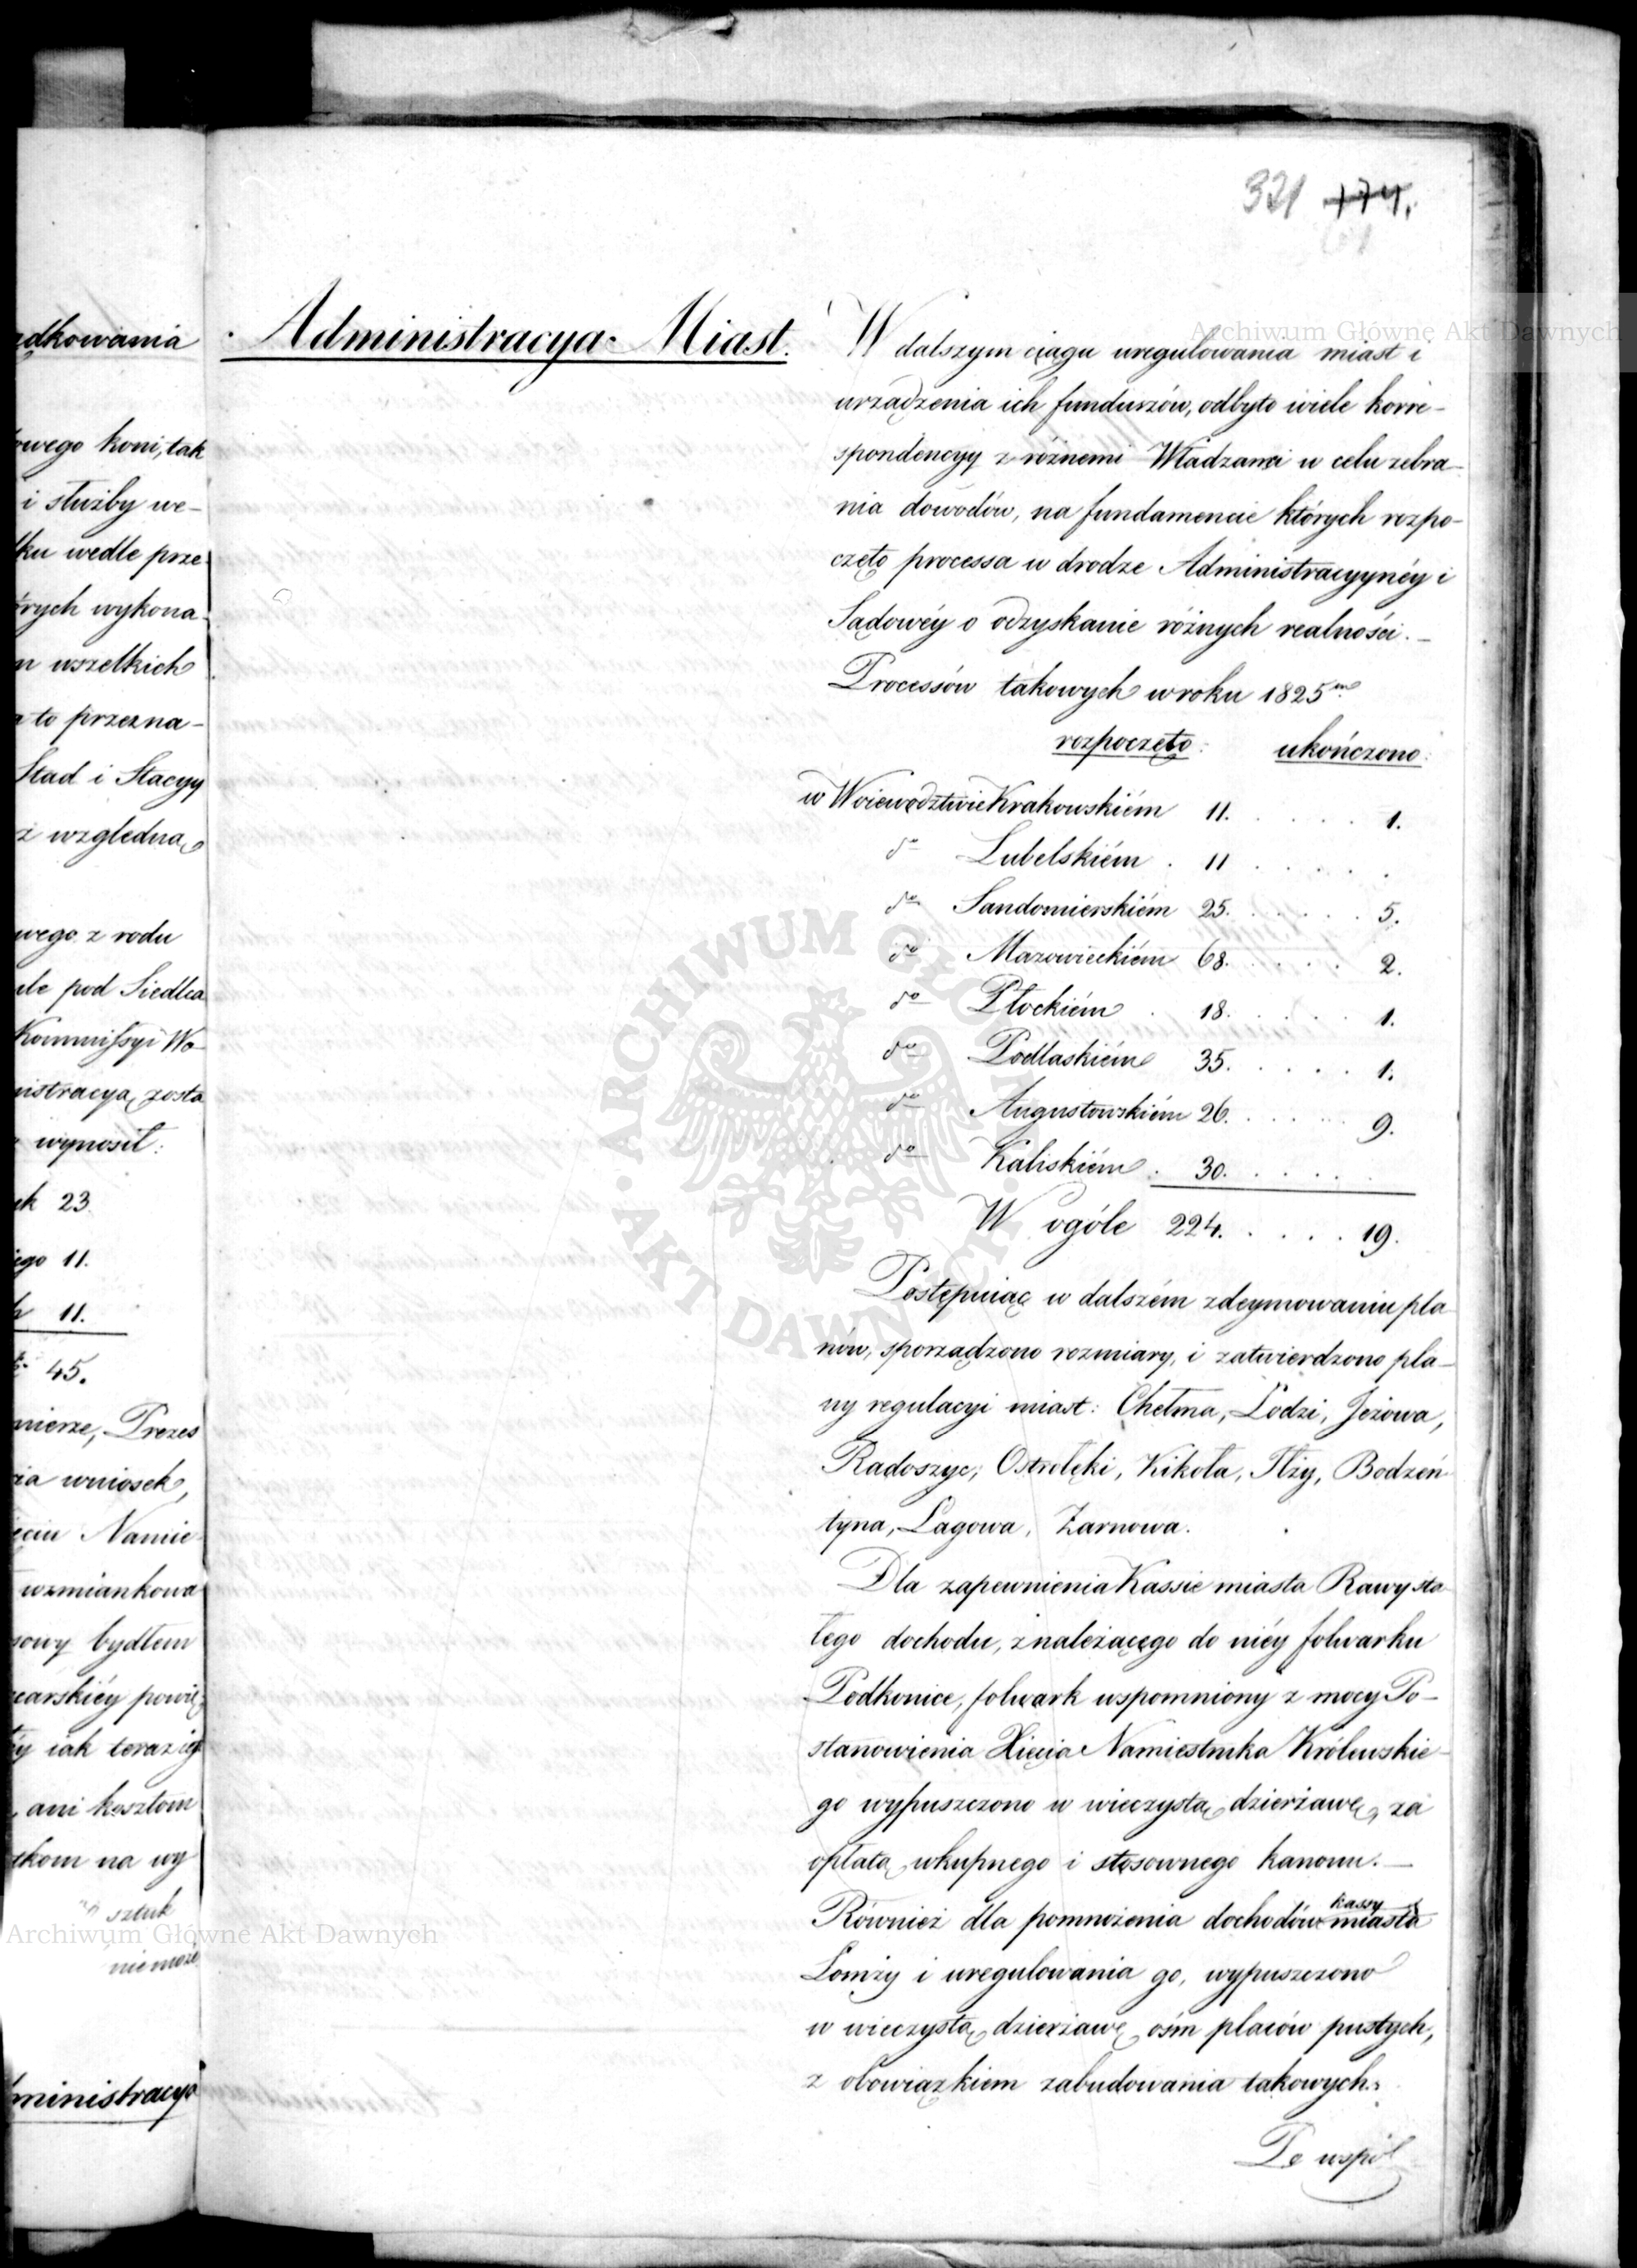 adkowania
owego koni, tak
i służby we-
łku wedle prze-
órych wykona-
m wszelkich
a to przezna-
Stad i Stacyy
ż względna
owego z rodu
ule pod Siedlca
Kommissyi Wo-
nistracyą zosta
wynosił:
uk 23.
iego 11.
h 11.
45.
mierze, Prezes
ia wniosek,
ęciu Namie-
wzmiankowa
sowy bydłem
carskiéy powię-
ani kosztom
tkom na wy
sztuk
nie może
ministracya
321 174.
Administracya Miast.
W dalszym ciągu uregulowania miast i
urządzenia ich funduszów, odbyto wiele korre-
spondencyy z różnemi Władzami w celu zebra-
nia dowodów, na fundamencie których rozpo-
częto processa w drodze Administracyynéy i
Sądowéy o odzyskanie różnych realności. –
Processów takowych w roku 1825m
rozpoczęto: ukończono:
w Woiewództwie Krakowskiém 11. . . . . . 1.
do Lubelskiém . 11 . . . . . .
do Sandomierskiém 25. . . . . . 5.
do Mazowieckiém 68. . . . . . 2.
do Płockiém . 18. . . . . . 1.
do Podlaskiém 35. . . . . . 1.
do Augustowskiém 26. . . . . . 9.
do Kaliskiém . 30. . . . . .
W ogóle 224. . . . . 19.
Postępuiąc w dalszém zdeymowaniu pla-
nów, sporządzono rozmiary, i zatwierdzono pla-
ny regulacyi miast: Chełma, Łodzi, Jeżowa,
Radoszyc, Ostrołęki, Kikoła, Iłży, Bodzen-
tyna, Łagowa, Żarnowa.
Dla zapewnienia Kassie miasta Rawy sta-
łego dochodu, z należącego do niéy folwarku
Podkonice, folwark wspomniony z mocy Po-
stanowienia Xięcia Namiestnika Królewskie-
go wypuszczono w wieczystą dzierżawę, za
opłatą wkupnego i stosownego kanonu. –
Również dla pomnożenia dochodów kassy miasta
Łomży i uregulowania go, wypuszczono
w wieczystą dzierżawę ośm placów pustych,
z obowiązkiem zabudowania takowych.
Po wspól
Archiwum Główne Akt Dawnych
ARCHIWUM GŁÓWNE AKT DAWNYCH
Archiwum Główne Akt Dawnych